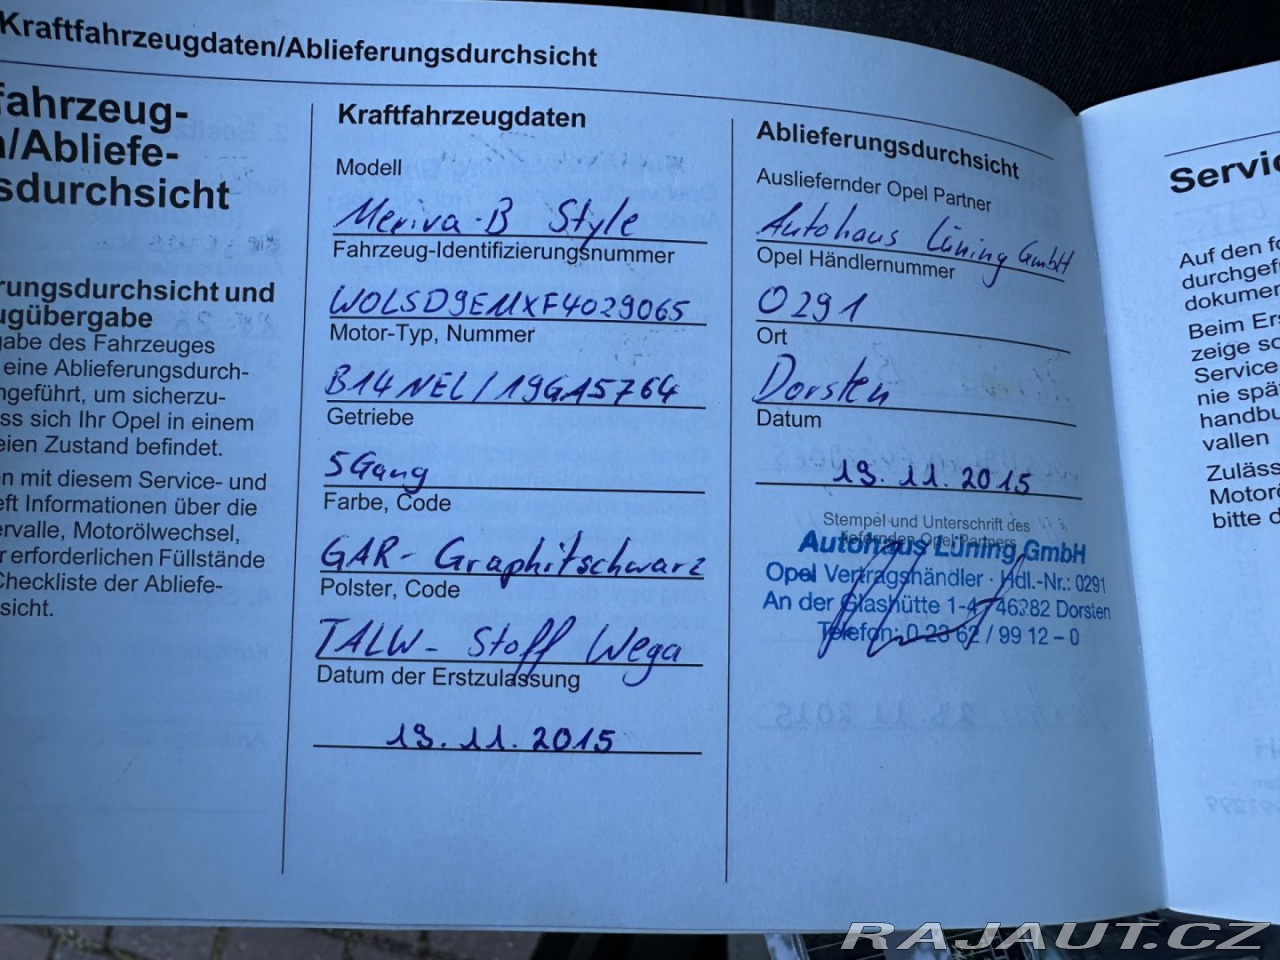 Kraftfahrzeugdaten/Ablieferungsdurchsicht
fahrzeug-
n/Abliefe-
sdurchsicht
rungsdurchsicht und
ugübergabe
gabe des Fahrzeuges
eine Ablieferungsdurch-
ngeführt, um sicherzu-
ss sich Ihr Opel in einem
eien Zustand befindet.
en mit diesem Service- und
eft Informationen über die
ervalle, Motorölwechsel,
r erforderlichen Füllstände
Checkliste der Abliefe-
sicht.
Kraftfahrzeugdaten
Modell
Meriva-B Style
Fahrzeug-Identifizierungsnummer
WOLSD9EMXF4029065
Motor-Typ, Nummer
B14NEL/19GA5764
Getriebe
5Gang
Farbe, Code
GAR- Graphitschwarz
Polster, Code
TALW- Stoff Wega
Datum der Erstzulassung
19.11.2015
Ablieferungsdurchsicht
Ausliefernder Opel Partner
Autohaus Lüning GmbH
Opel Händlernummer
0291
Ort
Dorsten
Datum
19.11.2015
Stempel und Unterschrift des
liefernden Opel Partners
Autohaus Lüning GmbH
Opel Vertragshändler · Hdl.-Nr.: 0291
An der Glashütte 1-4 46282 Dorsten
Telefon: 0 23 62 / 99 12 – 0
Servic
Auf den fo
durchgef
dokumen
Beim Ers
zeige so
Service
nie spä
handbu
vallen
Zuläss
Motorö
bitte d
RAJAUT.CZ